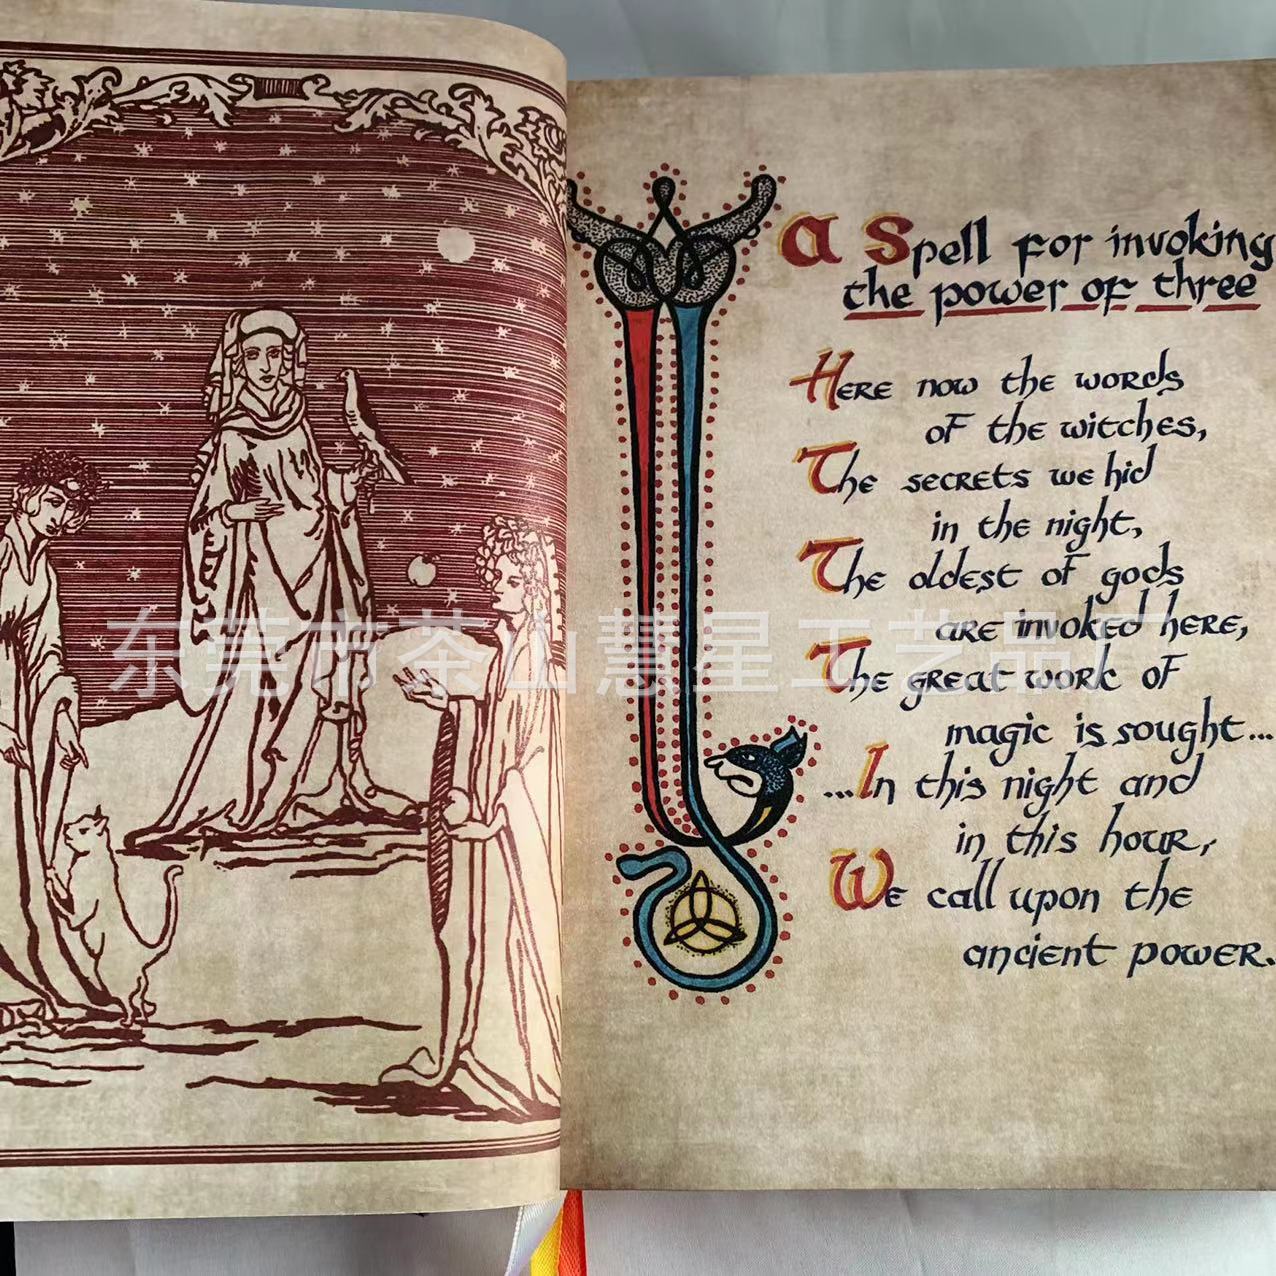 A Spell for invoking
the power of three
Here now the words
of the witches,
The secrets we hid
in the night,
The oldest of gods
are invoked here,
The great work of
magic is sought...
...In this night and
in this hour,
We call upon the
ancient power.
东莞市茶山慧星工艺品厂